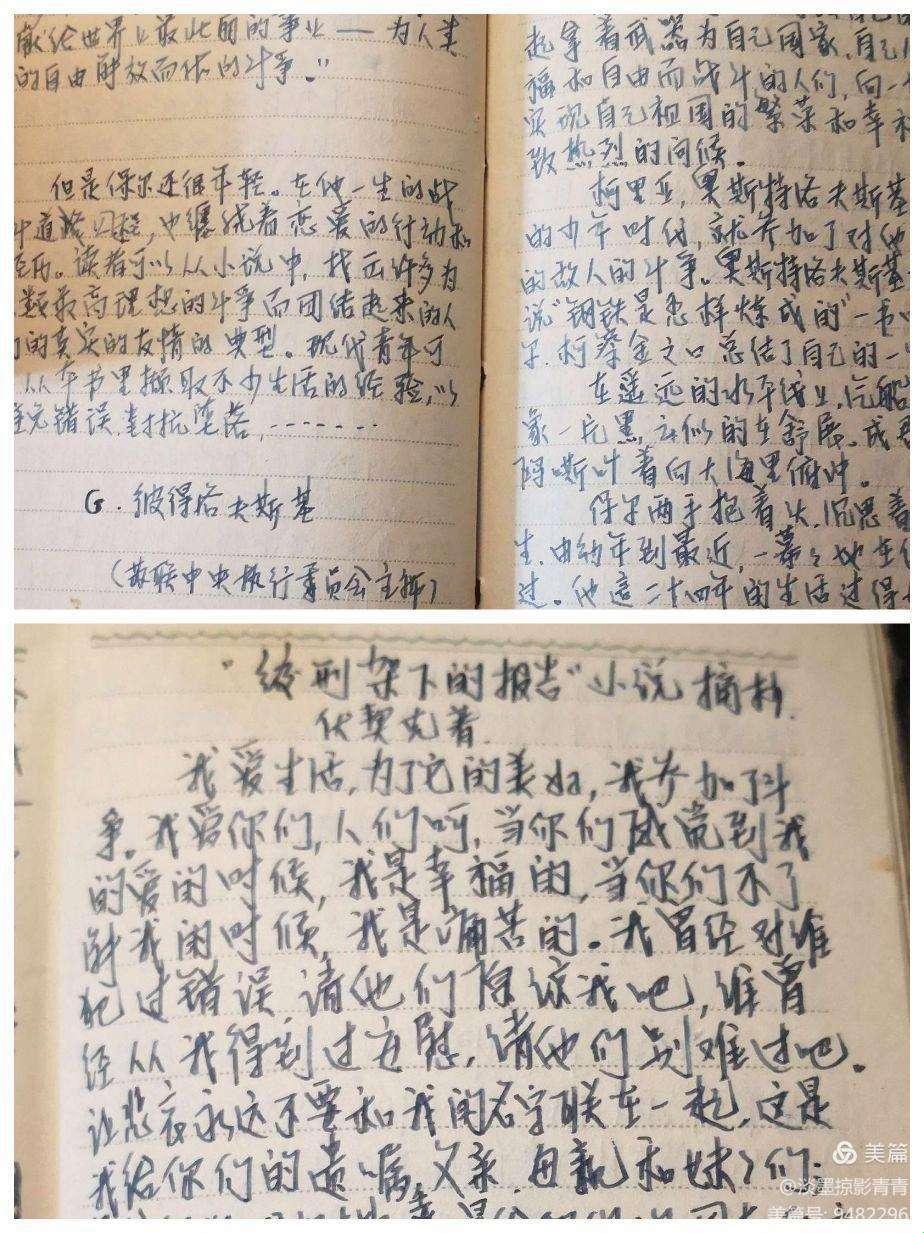 献给世界上最壮丽的事业——为人类
的自由解放而作的斗争。"
但是保尔还很年轻。在他一生的战
斗道路过程,中缠绕着恋爱的行动和
经历。读者可以从小说中,找出许多为
最高理想的斗争而团结起来的人
们的真实的友情的典型。现代青年可
从本书里摄取不少生活的经验,以
避免错误,對抗堕落,-------
G.彼得洛夫斯基
(苏联中央执行委员会主席)
起拿着武器为自己国家,自己
福和自由而战斗的人们,向一
实现自己祖国的繁荣和幸福
致热烈的问候。
柯里亚,奥斯特洛夫斯基
的少年时代,就参加了对他
的敌人的斗争。奥斯特洛夫斯基
说"钢铁是怎样炼成的"一书
尔.柯察金之口总结了自己的一
在遥远的水平线上,汽船
象一片黑云似的在舒展.成群
鸥嘶叶着向大海里俯冲。
保尔两手抱着头,沉思着
生.由幼年到最近,一幕々地在
过。他这二十四年的生活过得
"绞刑架下的报告"小说摘抄.
伏契克着.
我爱生活,为了它的美好,我参加了斗
争。我爱你们,人们呵,当你们感觉到我
的爱的时候,我是幸福的,当你们不了
解我的时候,我是痛苦的。我曾经对谁
犯过错误,请他们原谅我吧,谁曾
经从我得到过安慰,请他们别难过吧.
让悲哀永远不要和我的名字联在一起,这是
我给你们的遗嘱,父亲.母亲和妹々们.
美篇
@淡墨掠影青青
美篇号: 9482296